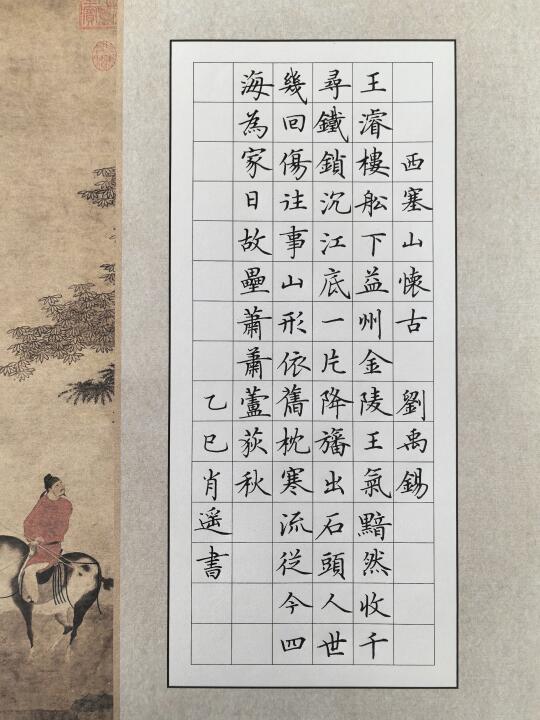 西塞山懷古 劉禹錫
王濬樓舩下益州金陵王氣黯然收千
尋鐵鎖沉江底一片降旛出石頭人世
幾回傷往事山形依舊枕寒流從今四
海為家日故壘蕭蕭蘆荻秋
乙巳肖遥書